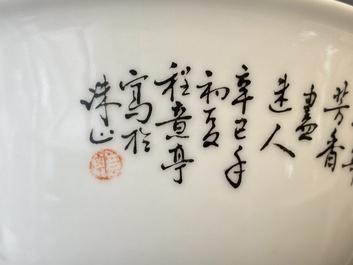 芳香
盡
迷人
辛巳年
初夏
程意亭
寫於
珠山